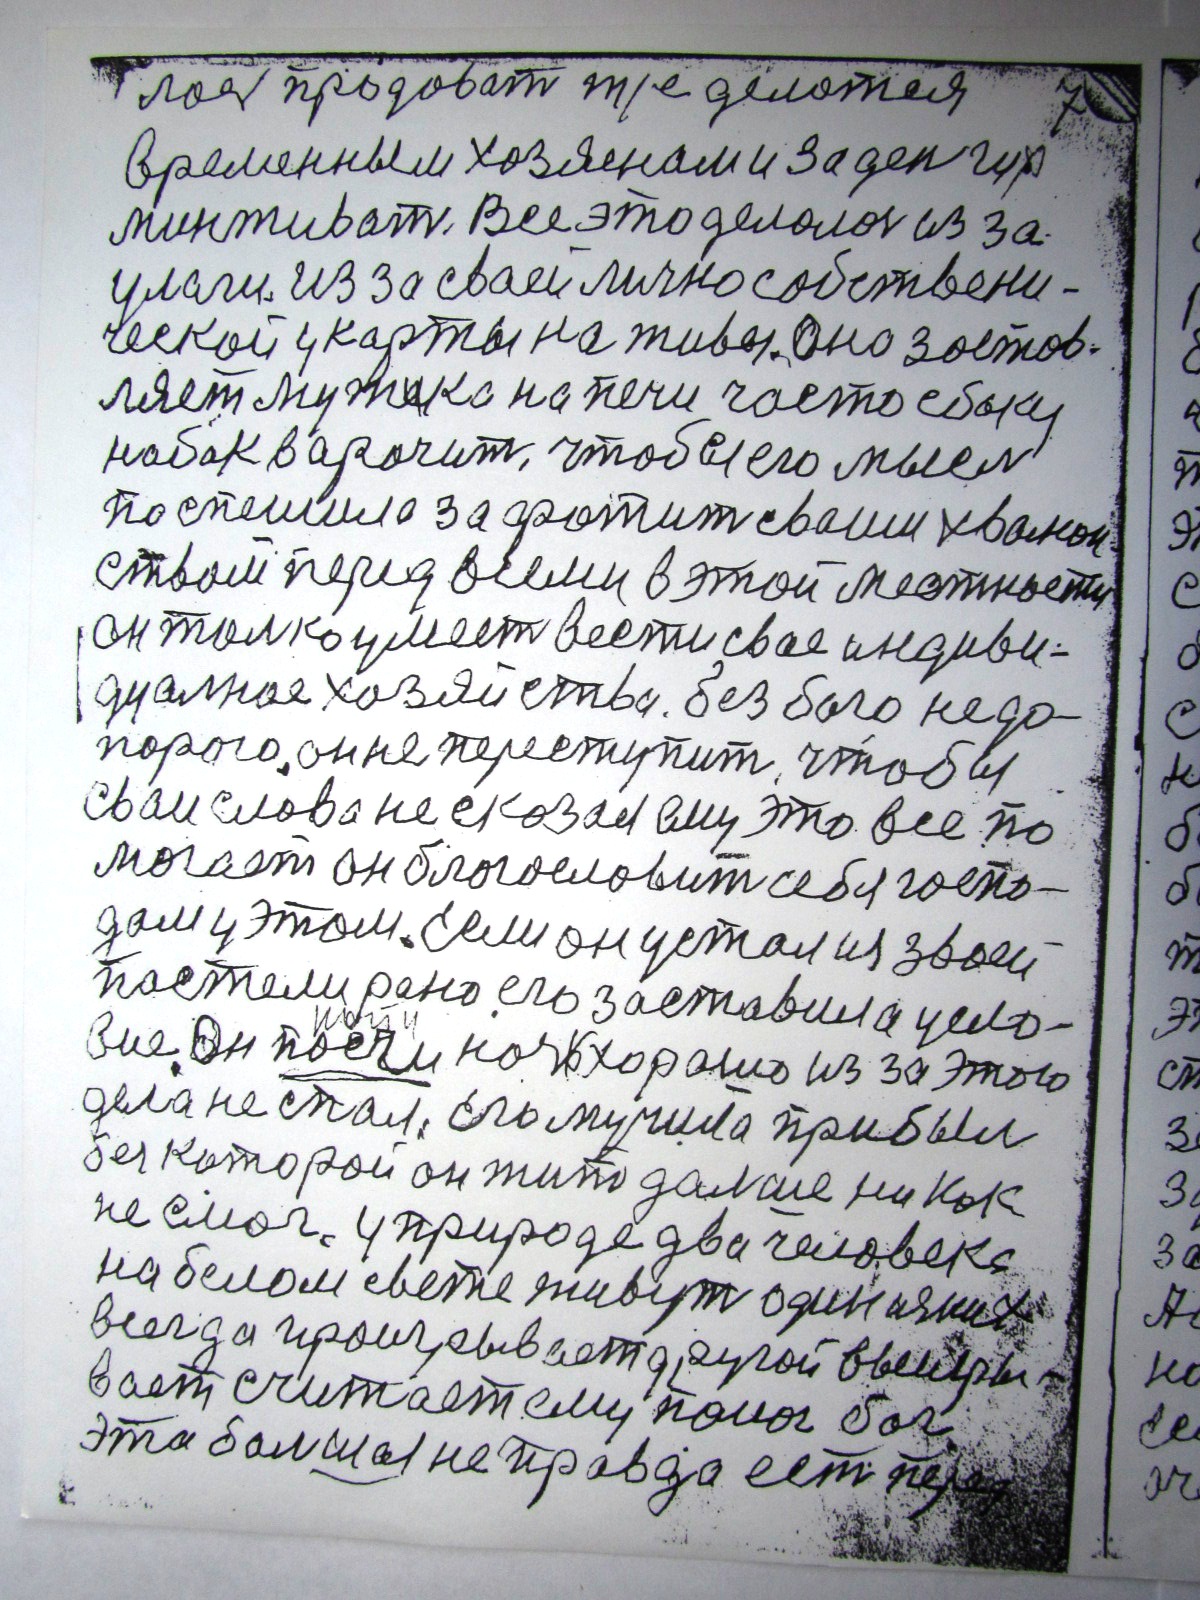 лоеч продоват тже делотся 7
временным хозяенам и за ден ги
минживат. Все это делолоч из за
улачи. из за сваей лично собствени-
ческой у карты на живы. Оно зостов-
ляет мужика на печи часто сбоку
на бак варочит, чтобы его мысл
поспешила за фротит сваим хвалон
ством перед всеми в этой местности
он толко умеет вести свае индиви-
дуалнае хозяйства. без бога не до
порога. он не переступит, чтобы
сваи слова не сказал ему это все по
могает он благословит себя госпо-
дам у этом. Если он устал из звоей
постели рано его заставила усло-
вие. Он почти ночь хорошо из за этого
дела не спал. его мучила прибыл
без которой он жит далше ни как
не смог. у природе два человека
на белом свете живут один из них
всегда проигрывает другой выигры-
вает считает ему помог бог
эта болшая не правда ест перед